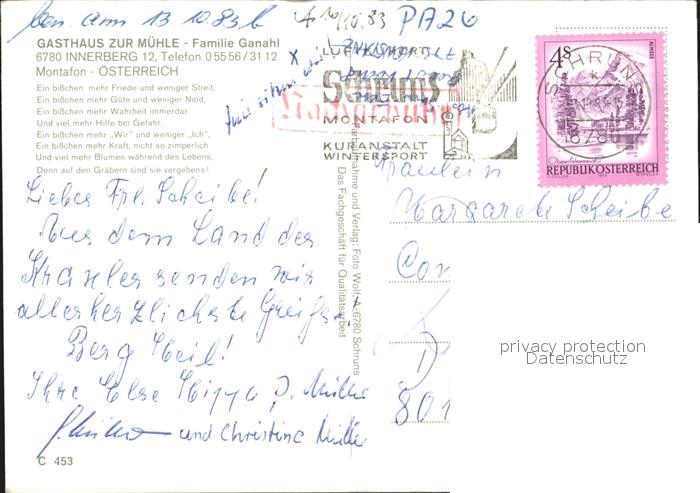 am 13 10 83
10.83 PA26
GASTHAUS ZUR MÜHLE - Familie Ganahl
6780 INNERBERG 12, Telefon 05556/3112
Montafon - ÖSTERREICH
Ein bißchen mehr Friede und weniger Streit,
Ein bißchen mehr Güte und weniger Neid,
Ein bißchen mehr Wahrheit immerdar
Und viel mehr Hilfe bei Gefahr.
Ein bißchen mehr „Wir" und weniger „Ich",
Ein bißchen mehr Kraft, nicht so zimperlich
Und viel mehr Blumen während des Lebens,
Denn auf den Gräbern sind sie vergebens!
LUFTKURORT
Schruns
MONTAFON
KURANSTALT
WINTERSPORT
4S
ALMSEE
SCHRUNS
6780
REPUBLIK ÖSTERREICH
Liebes Frl. Scheibe!
Aus dem Land der
senden wir
allerherzlichste Grüße.
Berg Heil!
Ihre Else Müller
und Christine Müller
Aufnahme und Verlag: Foto Wolf, A-6780 Schruns
Das Fachgeschäft für Qualitätsarbeit
Fräulein
Margarete Scheibe
Con
D
801
privacy protection
Datenschutz
C 453